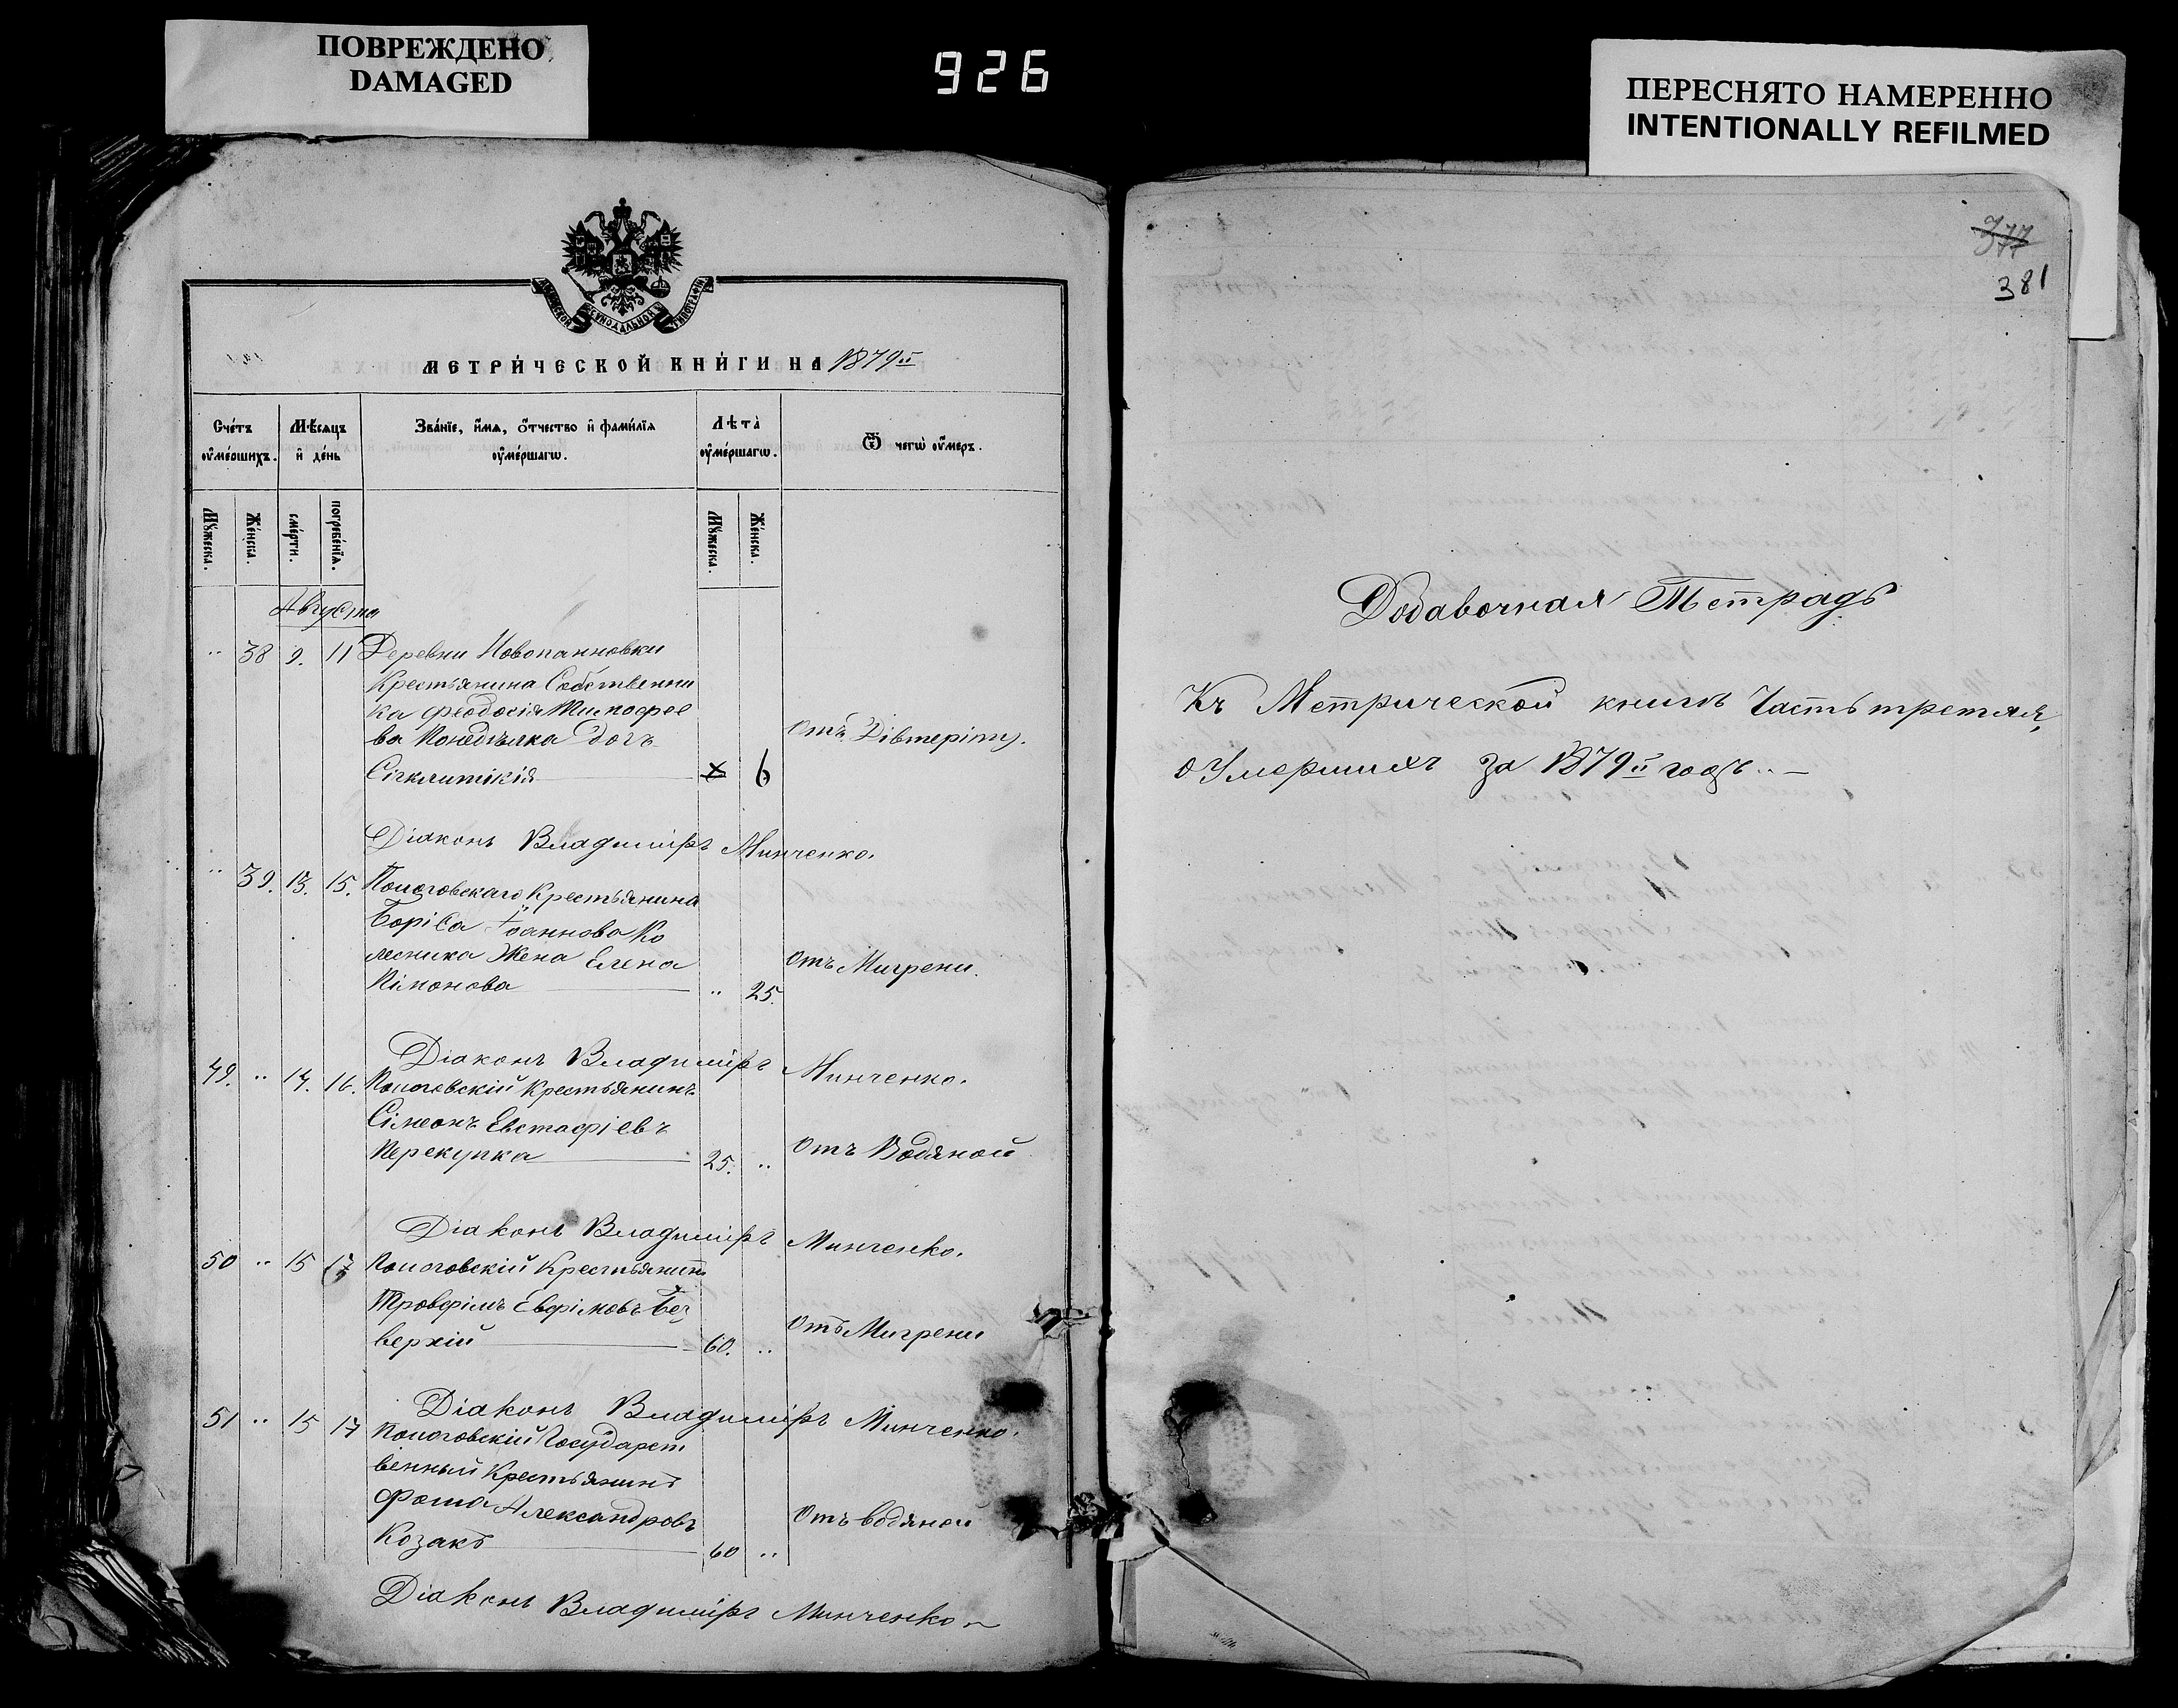 ПОВРЕЖДЕНО
DAMAGED
926
ПЕРЕСНЯТО НАМЕРЕННО
INTENTIONALLY REFILMED
МЕТРИ́ЧЕСКОЙ КНИ́ГИ НА 1879й
Сче́тъ ᲂу҆ме́ршихъ.
Мѣ́сяцъ и҆ де́нь
Зва́нїе, и҆́мя, ѻ҆́тчество и҆ фами́лїя ᲂу҆ме́ршагѡ.
Лѣ́та ᲂу҆ме́ршагѡ.
Ѿ чегѡ̀ ᲂу҆́меръ.
Мꙋ́жеска.
Же́нска.
сме́рти.
погребе́нїя.
Мꙋ́жеска.
Же́нска.
Августа
" 38 9. 11 Деревни Новопанновки
Крестьянина Собственни
ка Феодосія Тимофее
ва Понедѣлка дочь Отъ Дівтеріту.
Сігклитікія 6
Діаконъ Владиміръ Минченко.
" 39. 13. 15. Пологовскаго Крестьянина
Боріса Іоаннова Ко
лесника Жена Елена Отъ Мигрени.
Пімонова " 25.
Діаконъ Владиміръ Минченко.
49. " 14. 16. Пологовскій Крестьянинъ
Сімеонъ Евстафіевъ
Перекупка 25. " Отъ Водяной
Діаконъ Владиміръ Минченко.
50 " 15 17 Пологовскій Крестьянинъ
Трофімъ Евфімовъ Без
верхій 60. " Отъ Мигрени
Діаконъ Владиміръ Минченко.
51 " 15 17 Пологовскій Государст
венный Крестьянинъ
Фома Александровъ Отъ водяной
Козакъ 60 "
Діаконъ Владиміръ Минченко
377
381
Добавочная Тетрадь
Къ Метрической книгѣ Часть третья,
о Умершихъ за 1879й годъ